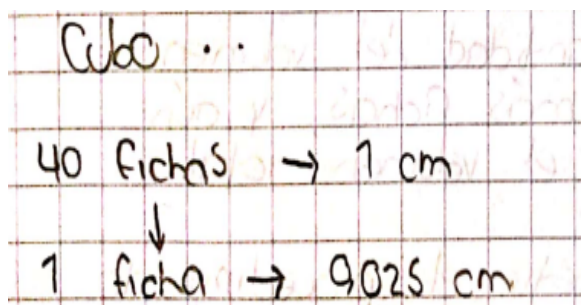 Cubo ..
40 fichas → 1 cm
↓
1 ficha → 0,025 cm